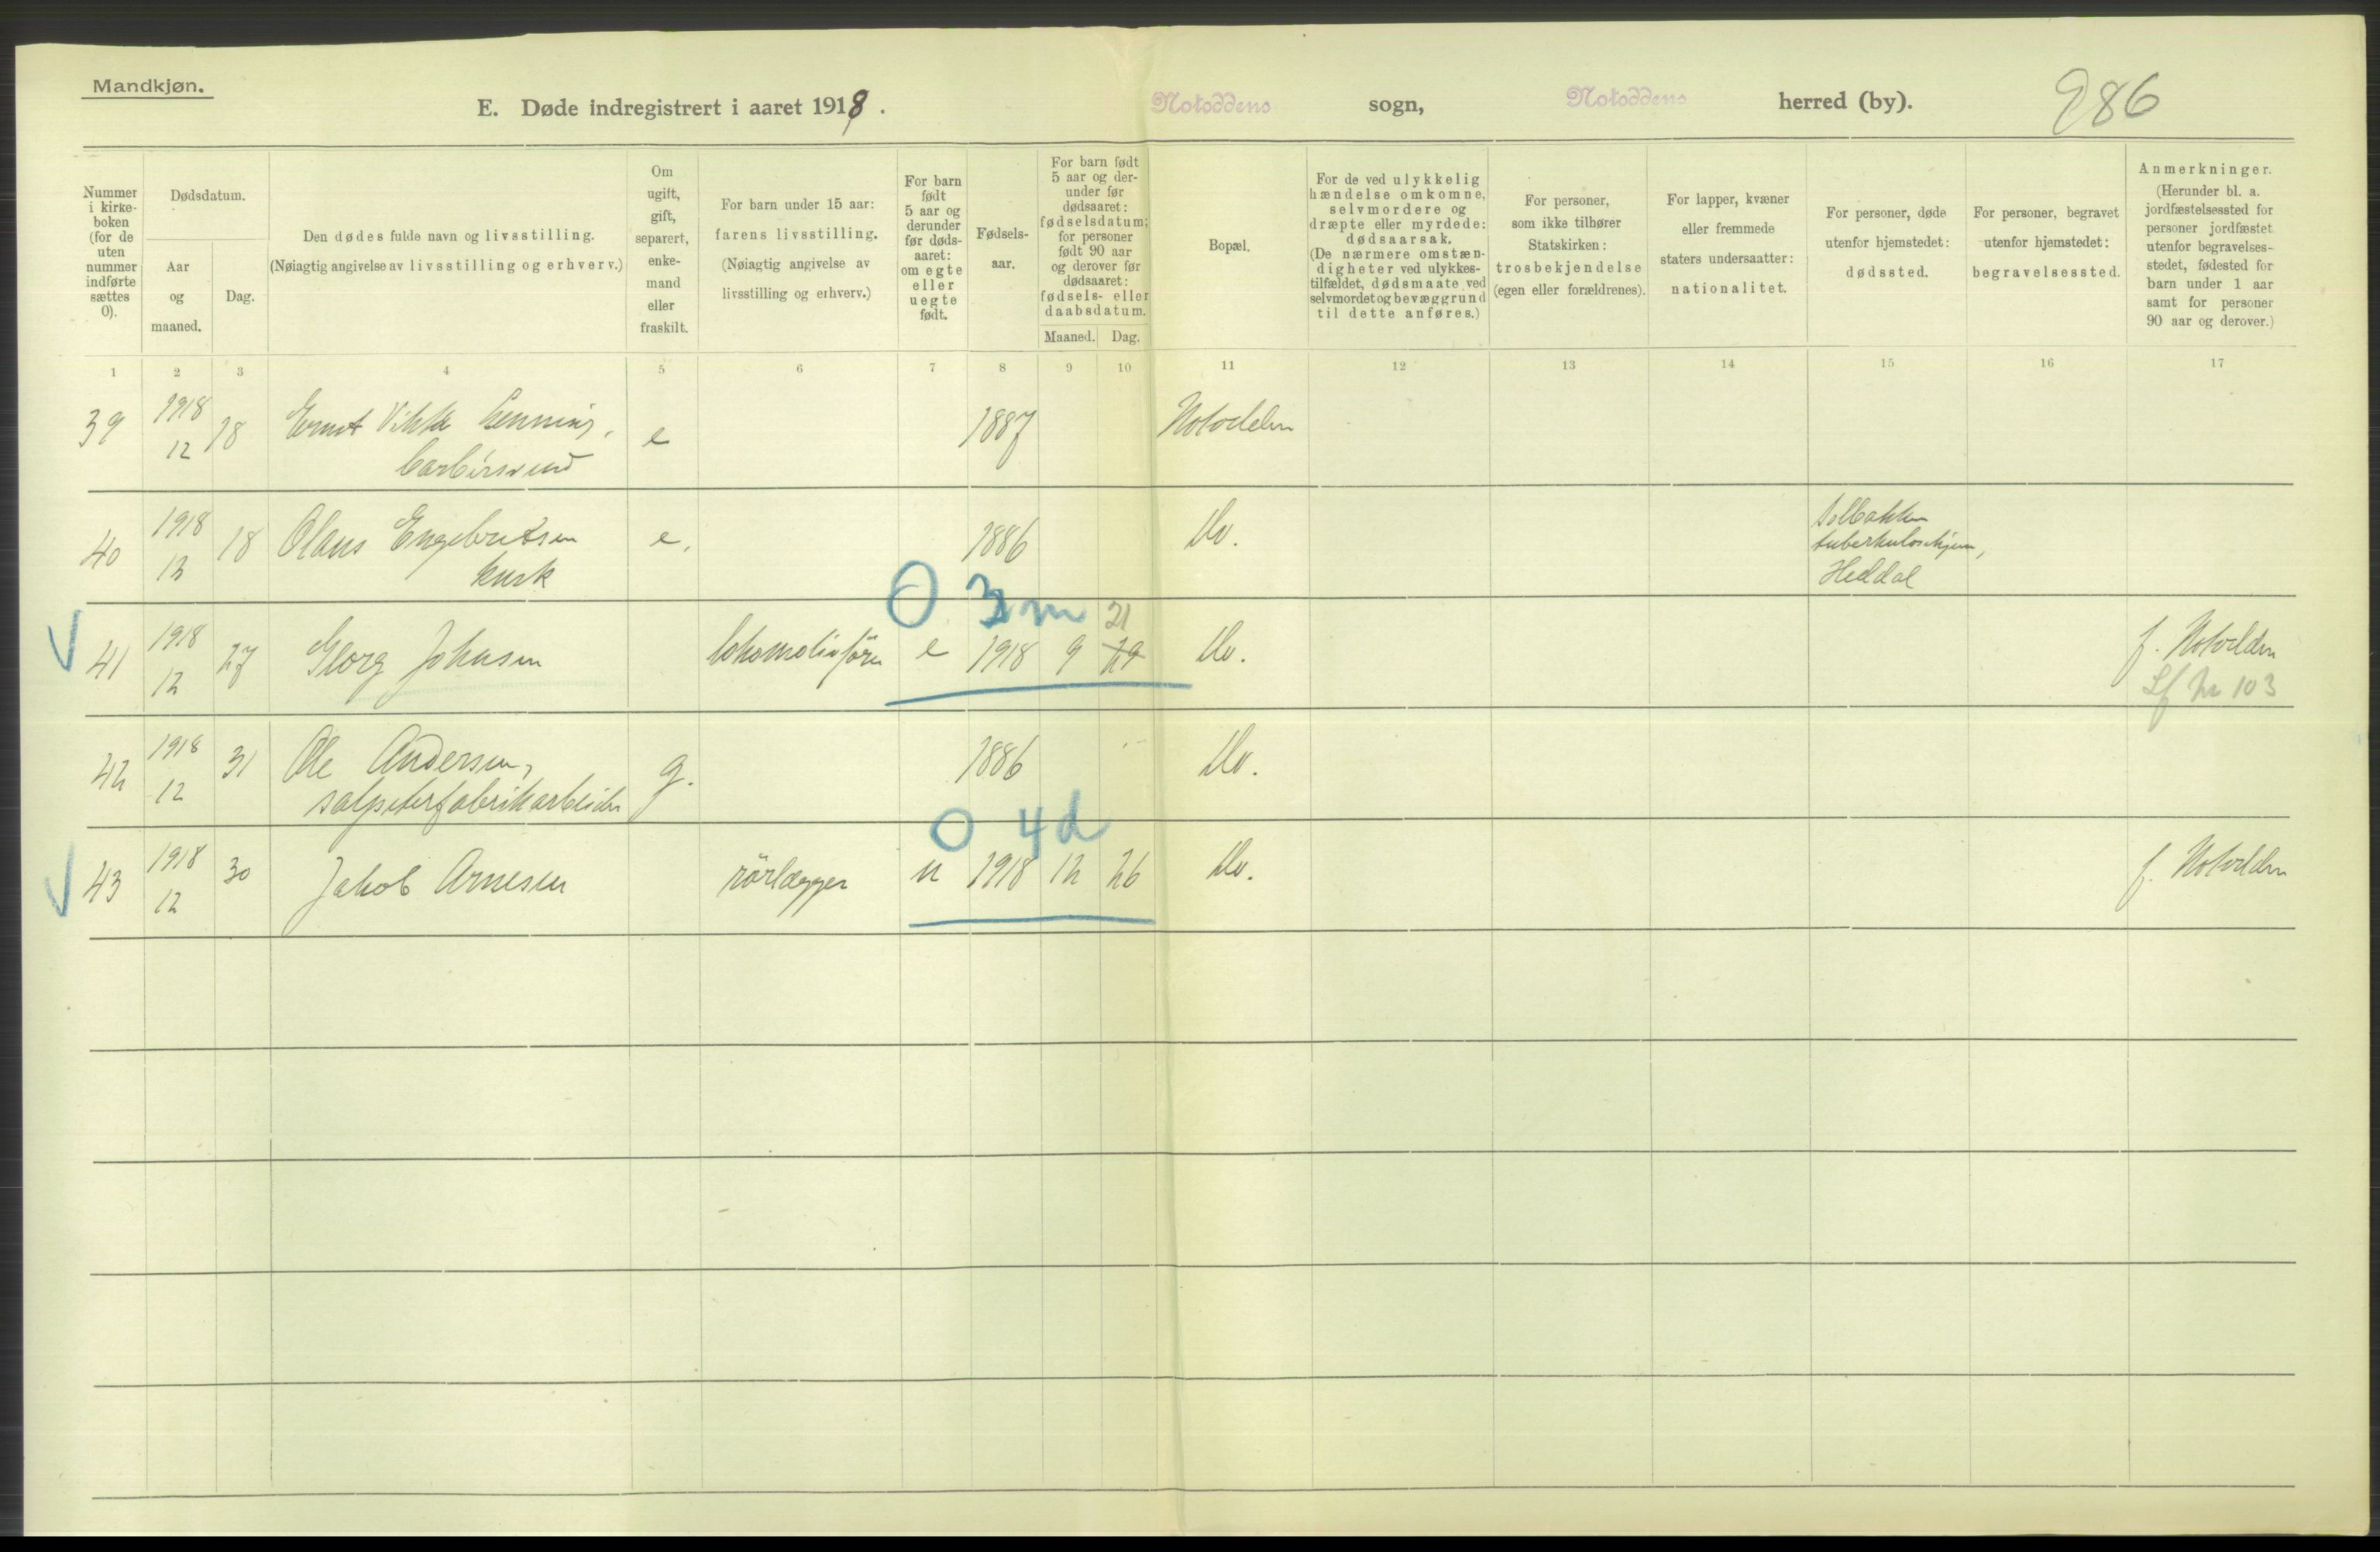 Mandkjøn.
E. Døde indregistrert i aaret 1918.
Notoddens sogn, Notoddens herred (by).
286
Nummer i kirke-boken (for de uten nummer indførte sættes 0).
Dødsdatum.
Aar og maaned.
Dag.
Den dødes fulde navn og livsstilling.
(Nøiagtig angivelse av livsstilling og erhverv.)
Om ugift, gift, separert, enke-mand eller fraskilt.
For barn under 15 aar:
farens livsstilling.
(Nøiagtig angivelse av
livsstilling og erhverv.)
For barn født 5 aar og derunder før døds-aaret: om egte eller uegte født.
Fødsels-aar.
For barn født 5 aar og der-under før dødsaaret: fødselsdatum; for personer født 90 aar og derover før dødsaaret: fødsels- eller daabsdatum.
Maaned. Dag.
Bopæl.
For de ved ulykkelig hændelse omkomne, selvmordere og dræpte eller myrdede: dødsaarsak.
(De nærmere omstæn-digheter ved ulykkes-tilfældet, dødsmaate ved selvmordet og bevæggrund til dette anføres.)
For personer, som ikke tilhører Statskirken: trosbekjendelse (egen eller forældrenes).
For lapper, kvæner eller fremmede staters undersaatter: nationalitet.
For personer, døde utenfor hjemstedet: dødssted.
For personer, begravet utenfor hjemstedet: begravelsessted.
Anmerkninger.
(Herunder bl. a. jordfæstelsessted for personer jordfæstet utenfor begravelses-stedet, fødested for barn under 1 aar samt for personer 90 aar og derover.)
1 2 3 4 5 6 7 8 9 10 11 12 13 14 15 16 17
39 1918 12 18 Ernst Henning, e 1887 Notodden
barbersvend
40 1918 12 18 Olaus Engebretsen e. 1886 Do. Solbakken tuberkulosehjem, Heddal
kusk
0 3 m
41 1918 12 27 Georg Johnsen lokomotivförer e 1918 9 29 21 Do. f. Notodden
Lf nr 103
42 1918 12 31 Ole Andersen, g. 1886 Do.
salpeterfabrikarbeider
0 4 d
43 1918 12 30 Jakob Arnesen rörlægger u 1918 12 26 Do. f. Notodden